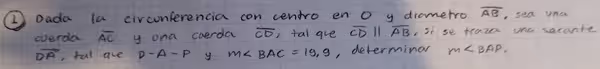 ② Dada la circunferencia con centro en O y diametro A̅B̅, sea una
cuerda A̅C̅ y una cuerda C̅D̅, tal que C̅D̅ || A̅B̅, si se traza una secante
D̅A̅, tal que D-A-P y m∢BAC = 19,9, determinar m∢BAP.